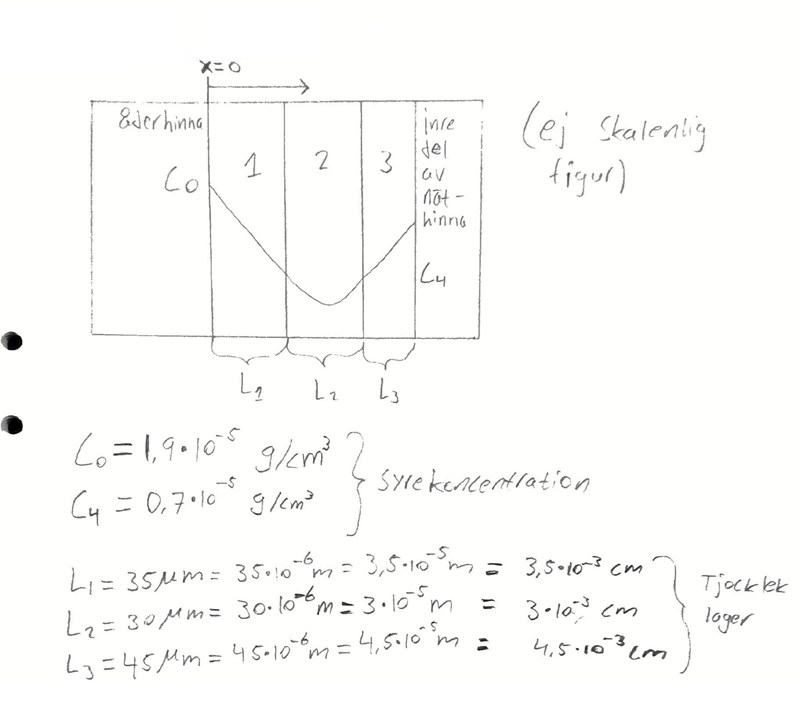 x=0
åderhinna
1
2
3
inre
del
av
nät-
hinna
C0
C4
(ej skalenlig
figur)
L1
L2
L3
C0 = 1,9·10^-5 g/cm^3
C4 = 0,7·10^-5 g/cm^3
Syrekoncentration
L1 = 35 μm = 35·10^-6 m = 3,5·10^-5 m = 3,5·10^-3 cm
L2 = 30 μm = 30·10^-6 m = 3·10^-5 m = 3·10^-3 cm
L3 = 45 μm = 45·10^-6 m = 4,5·10^-5 m = 4,5·10^-3 cm
Tjocklek
lager